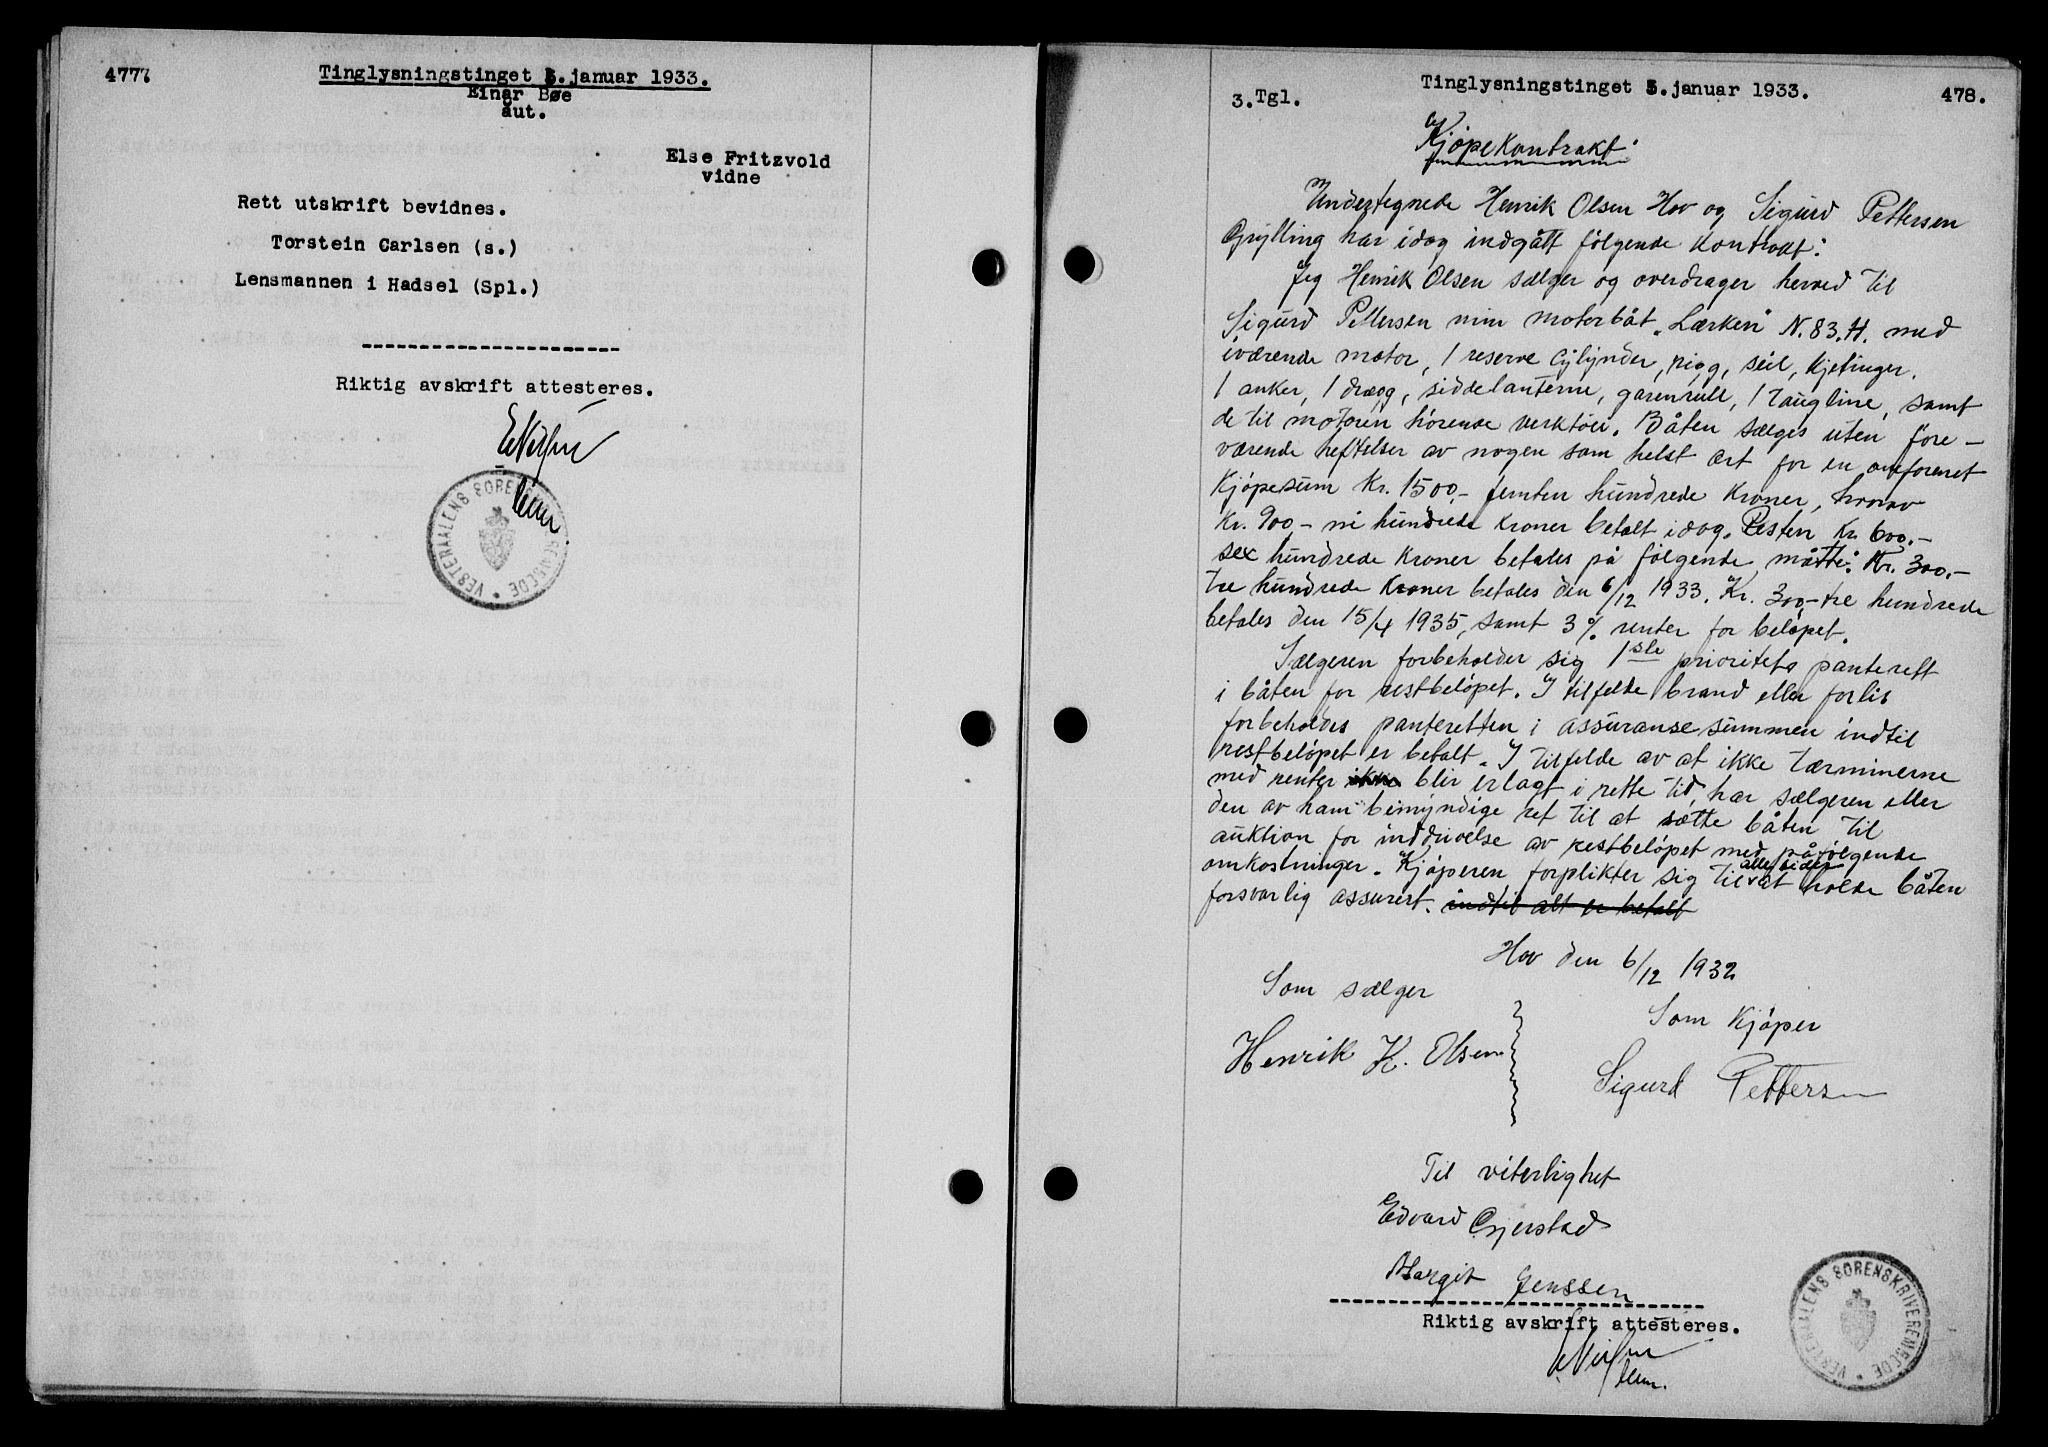 4777.
Tinglysningstinget 3. januar 1933.
Einar Bøe
aut.
Else Fritzvold
vidne
Rett utskrift bevidnes.
Torstein Carlsen (s.)
Lensmannen i Hadsel (Spl.)
Riktig avskrift attesteres.
VESTERAALENS SORENSKRIVEREMBEDE
Tinglysningstinget 3. januar 1933.
478.
3. Tgl.
Kjöpekontrakt.
Undertegnede Henrik Olsen Hov og Sigurd Pettersen
Grylling har idag indgått følgende kontrakt:
Jeg Henrik Olsen sælger og overdrager herved til
Sigurd Pettersen min motorbåt "Lærken" N.83.H. med
iværende motor, 1 reserve cylynder, rigg, seil, kjetinger.
1 anker, 1 dræg, siddelanterne, garenrull, 1 taugline, samt
de til motoren hörende verktöi. Båten sælges uten före-
værende heftelser av nogen som helst art for en omforenet
kjöpesum Kr. 1500,- femten hundrede kroner, hvorav
Kr. 900,- ni hundrede kroner betalt idag. Resten Kr. 600.-
sex hundrede kroner betales på følgende måtte: Kr. 300.-
tre hundrede kroner betales den 6/12 1933. Kr. 300,- tre hundrede
betales den 15/4 1935, samt 3% renter for belöpet.
Sælgeren forbeholder sig 1ste prioritets panterett
i båten for restbelöpet. I tilfelde brand eller forlis
forbeholdes panteretten i assuranse summen indtil
restbelöpet er betalt. I tilfelde av at ikke tærminerne
med renter ikke blir erlagt i rette tid, har sælgeren eller
den av ham bemyndige ret til at sætte båten til
auktion for inddrivelse av restbelöpet med påfølgende
omkostninger. Kjöperen forplikter sig til alle tider at holde båten
forsvarlig assurert. indtil alt er betalt
Hov den 6/12 1932
Som sælger
Som kjöper
Henrik K. Olsen
Sigurd Pettersen
Til viterlighet
Edvard Gjerstad
Margit Jenssen
Riktig avskrift attesteres.
VESTERAALENS SORENSKRIVEREMBEDE